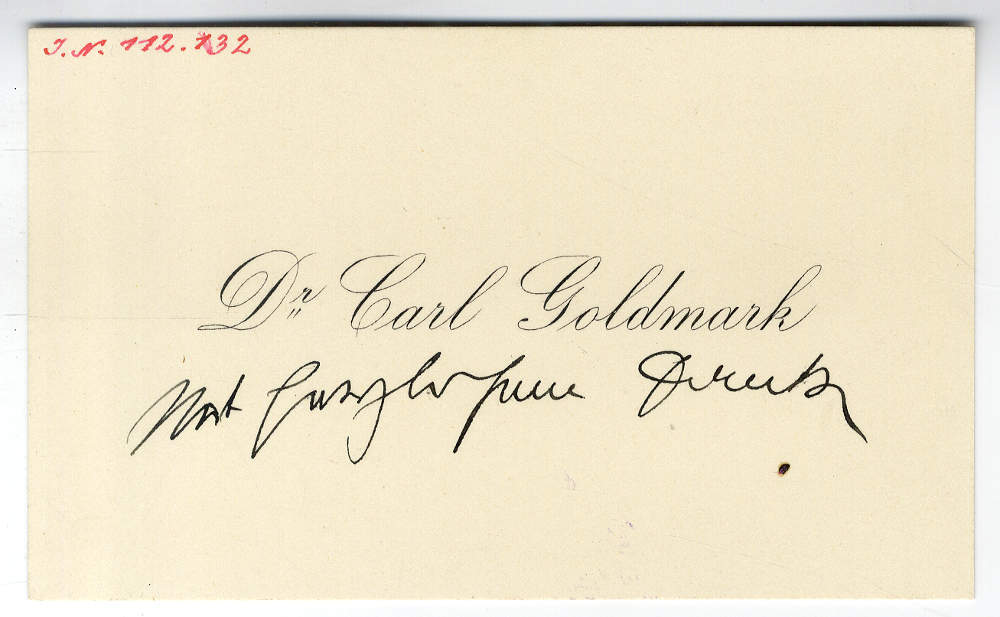 J. N. 112.132
Dr. Carl Goldmark
Mit herzlichem Dank